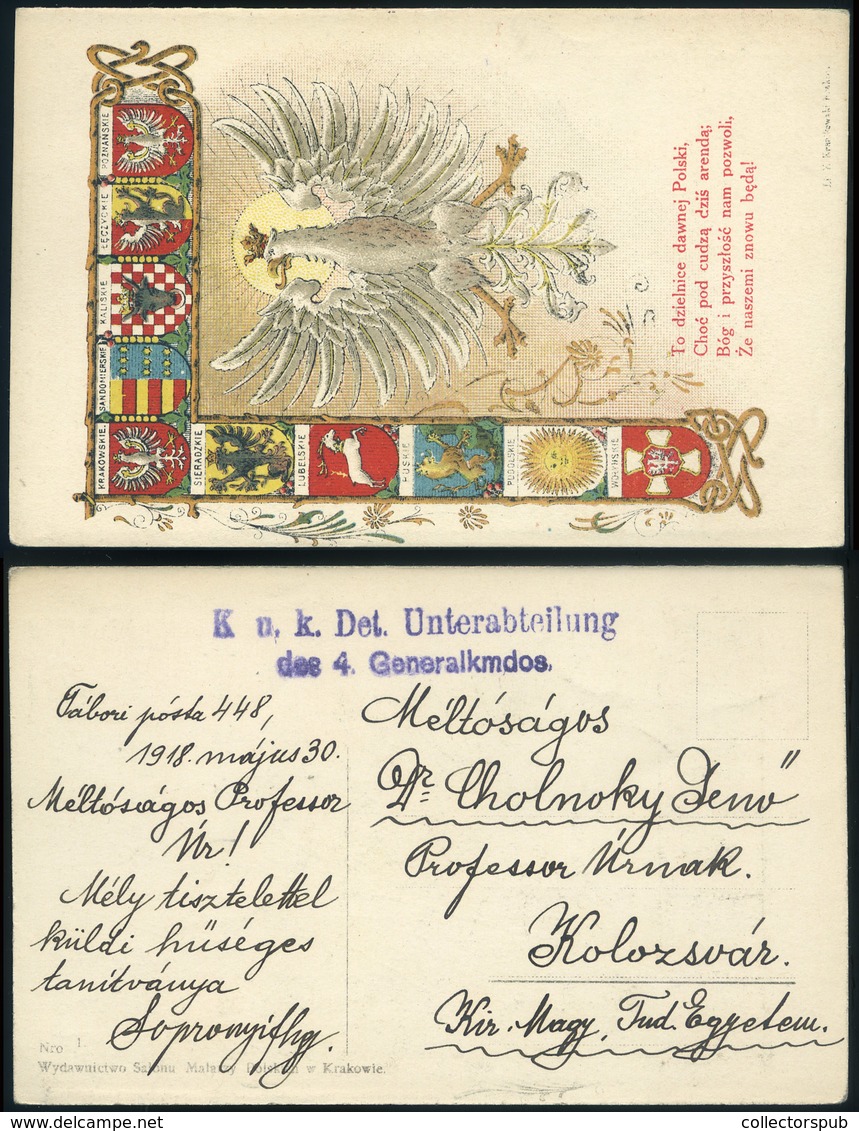 POZNAŃSKIE
ŁĘCZYCKIE
KALISKIE
SANDOMIERSKIE
KRAKOWSKIE.
SIERADZKIE
LUBELSKIE
RUSKIE
PODOLSKIE
WOŁYŃSKIE
To dzielnice dawnej Polski,
Choć pod cudzą dziś arendą;
Bóg i przyszłość nam pozwoli,
Że naszemi znowu będą!
K u. k. Det. Unterabteilung
des 4. Generalkmdos.
Tábori pósta 448,
1918. május 30.
Méltóságos Professor
Úr!
Mély tisztelettel
küldi hűséges
tanítványa
Sopronyi
Méltóságos
Dr. Cholnoky Jenő
Professor Úrnak.
Kolozsvár.
Kir. Magy. Tud. Egyetem.
Nro 1
Wydawnictwo Salonu Malarzy Polskich w Krakowie.
collectorspub